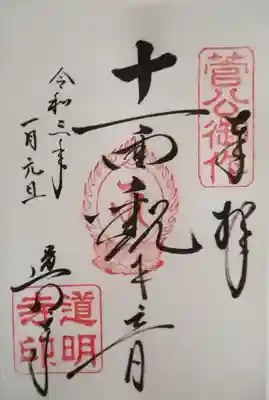 奉拝
菅公御作
十一面観世音
令和三年
一月元旦
道明寺
道明寺印